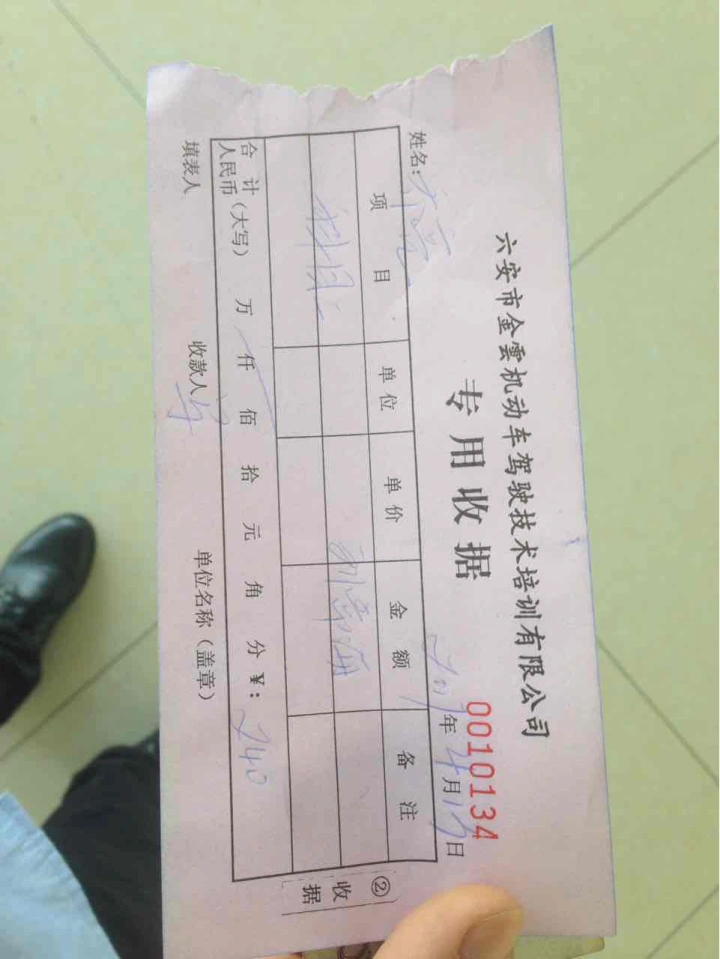 六安市金雲机动车驾驶技术培训有限公司
专用收据
0010134
姓名:
年4月 日
项目 单位 单价 金额 备注
科目二
合计
人民币(大写) 万 仟 佰 拾 元 角 分 ¥: 240
填表人 收款人 单位名称(盖章)
②收据